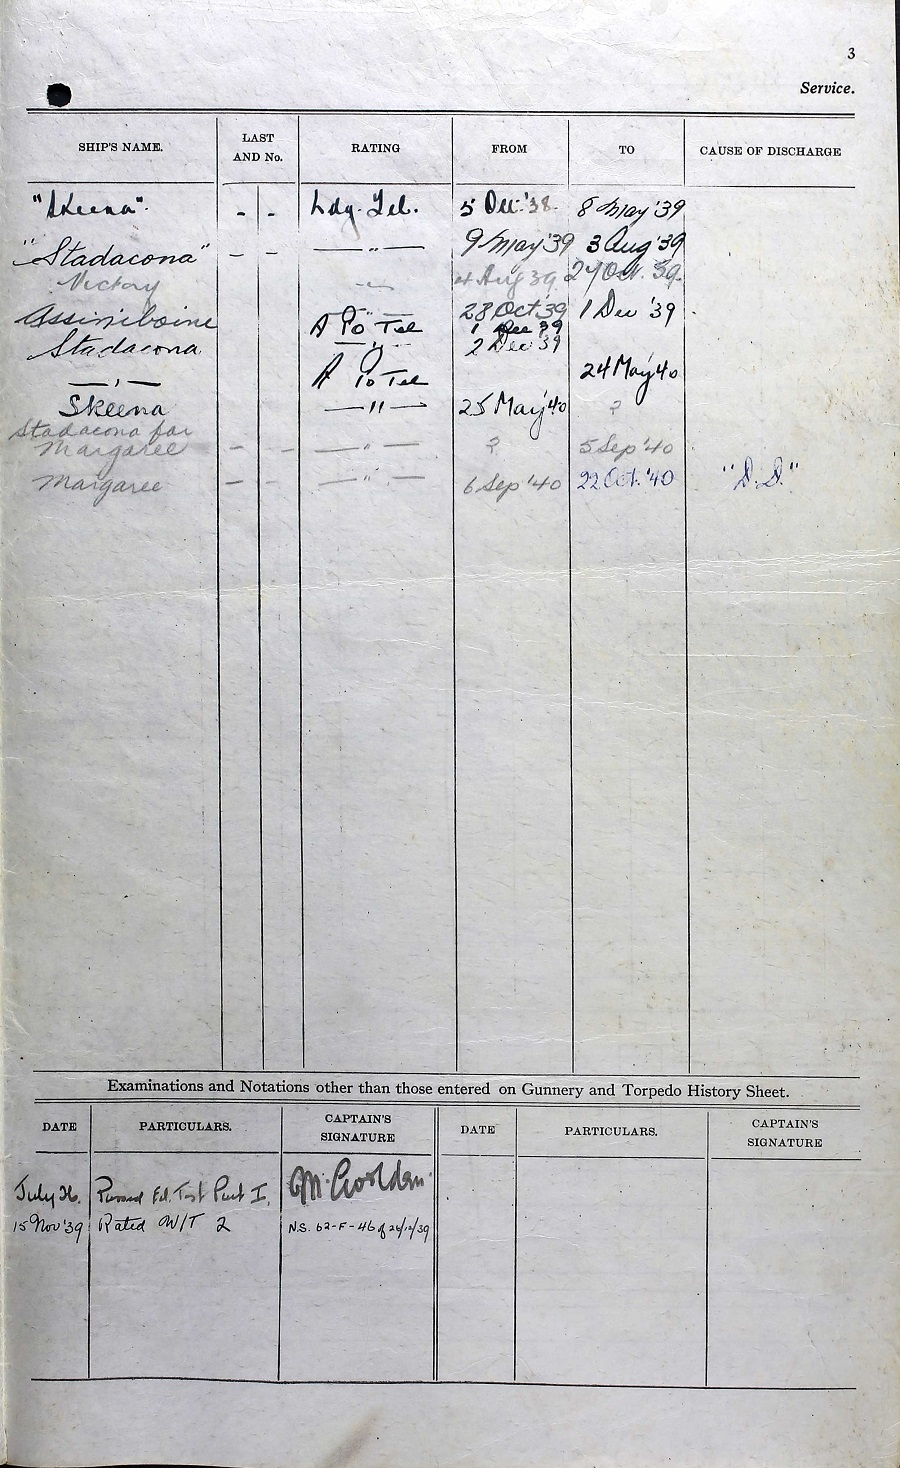 3
Service.
SHIP'S NAME. LAST AND No. RATING FROM TO CAUSE OF DISCHARGE
"Skeena". - - Ldg. Tel. 5 Dec '38. 8 May '39
"Stadacona" - - — " — 9 May '39 3 Aug '39
Victory 4 Aug 39 27 Oct. 39.
Assiniboine 28 Oct '39 1 Dec '39
A Po Tel 1 Dec 39
Stadacona — " — 2 Dec 39
— " — A Po Tel 24 May '40
Skeena — " — 25 May '40 ?
Stadacona for
Margaree - - — " — ? 5 Sep '40
Margaree - - — " — 6 Sep '40 22 Oct. '40 "D.D."
Examinations and Notations other than those entered on Gunnery and Torpedo History Sheet.
DATE PARTICULARS. CAPTAIN'S SIGNATURE DATE PARTICULARS. CAPTAIN'S SIGNATURE
July 36. Passed Ed. Test Part I.
15 Nov '39 Rated W/T 2 N.S. 62-F-46 of 26/12/39